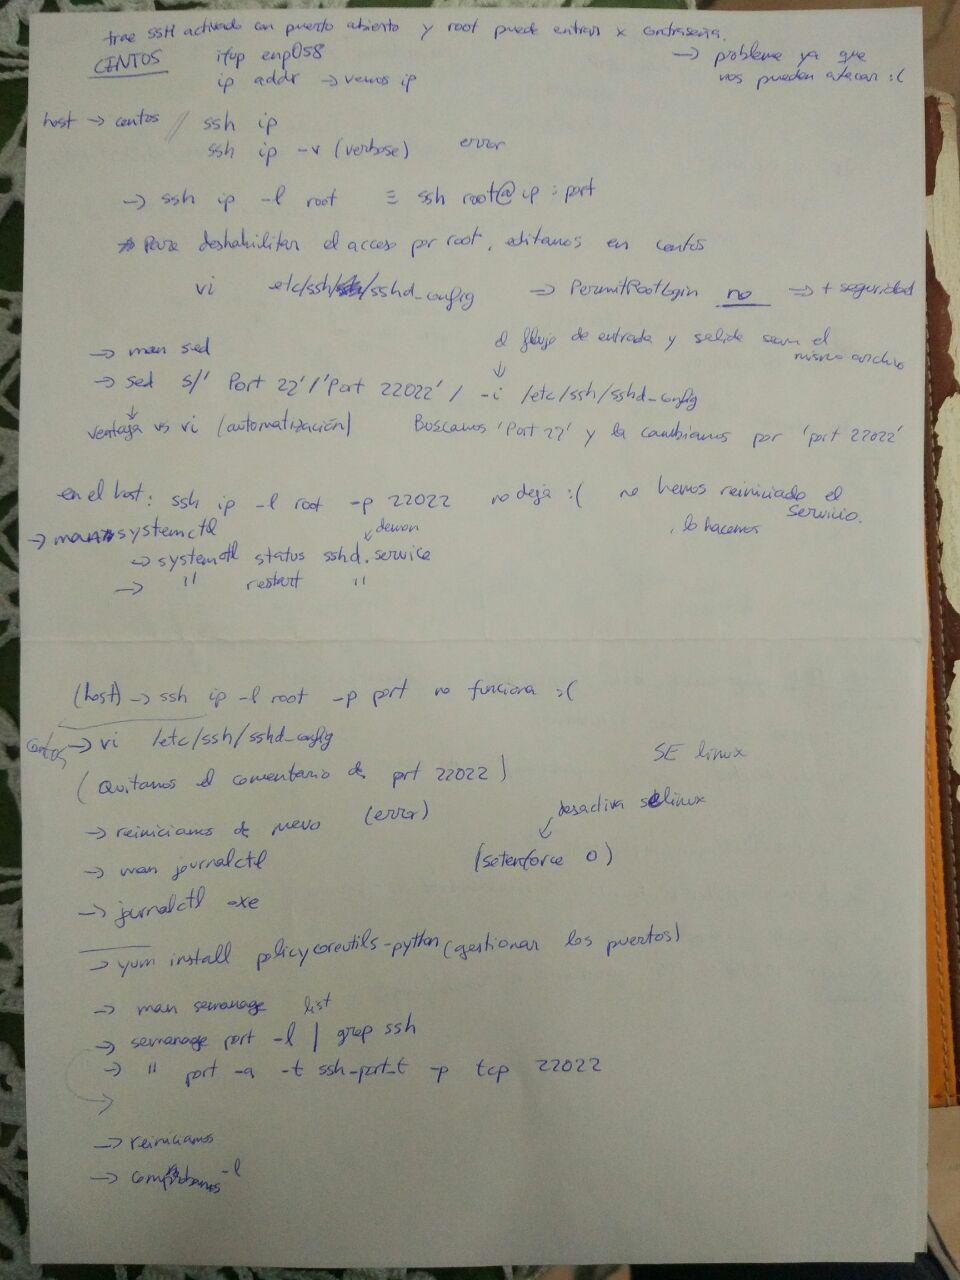 trae SSH activado con puerto abierto y root puede entrar x contraseña.
CENTOS ifup enp0s8 → problema ya que
ip addr → vemos ip nos pueden atacar :(
host → centos // ssh ip
ssh ip -v (verbose) error
→ ssh ip -l root ≡ ssh root@ip:port
Para deshabilitar el acceso por root, editamos en centos
vi etc/ssh/sshd_config ⇒ PermitRootLogin no ⇒ + seguridad
→ man sed el flujo de entrada y salida sean el
mismo archivo
→ sed s/'Port 22'/'Port 22022'/ -i /etc/ssh/sshd_config
ventaja vs vi (automatización) Buscamos 'Port 22' y la cambiamos por 'port 22022'
en el host: ssh ip -l root -p 22022 no deja :( no hemos reiniciado el
servicio.
→ man systemctl demon , lo hacemos
→ systemctl status sshd.service
→ " restart "
(host) → ssh ip -l root -p port no funciona :(
centos → vi /etc/ssh/sshd_config
SE linux
(Quitamos el comentario de port 22022)
desactiva selinux
→ reiniciamos de nuevo (error)
→ man journalctl (setenforce 0)
→ journalctl -xe
→ yum install policycoreutils-python (gestionar los puertos)
→ man semanage list
→ semanage port -l | grep ssh
→ " port -a -t ssh_port_t -p tcp 22022
→ reiniciamos
→ comprobamos -l